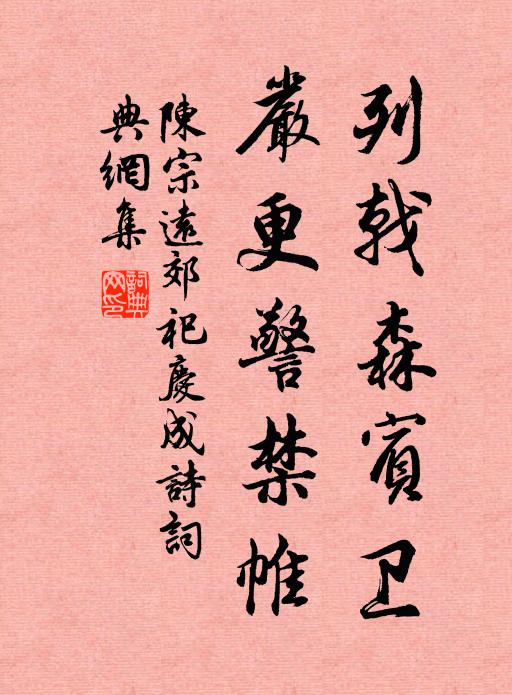 列戟森賓卫
嚴更警禁帷
陳宗遠郊祀慶成詩詞
典網集
詞典網印